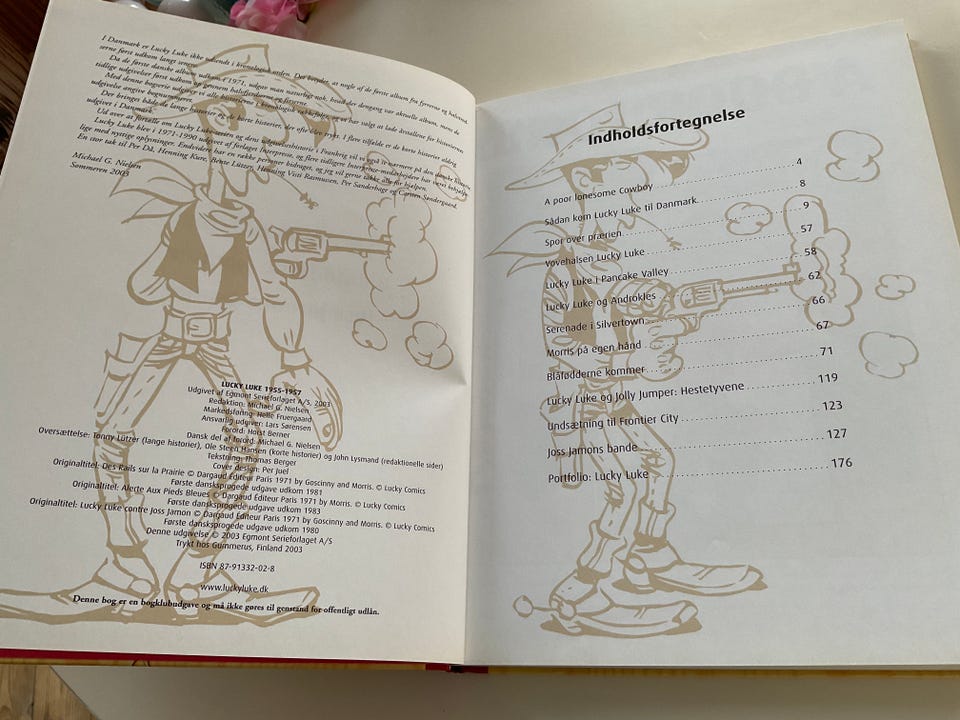 I Danmark er Lucky Luke ikke udsendt i kronologisk orden. Det betyder, at nogle af de første album fra fyrrerne og halvtred-
serne først udkom langt senere.
Da de første danske album udkom i 1971, udgav man naturligt nok, hvad der dengang var aktuelle album, mens de
tidlige udgivelser først udkom op gennem halvfjerdserne og firserne.
Med denne bogserie udgiver vi alle historierne i kronologisk rækkefølge, og vi har valgt at lade årstallene for historiernes
udgivelse angive bognumrene.
Der bringes både de lange historier og de korte historier, der ofte blev trykt. I flere tilfælde er de korte historier aldrig
udgivet i Danmark.
Ud over at fortælle om Lucky Luke-serien og dens udgivelseshistorie i Frankrig vil vi også se nærmere på den danske historie.
Lucky Luke blev i 1971-1990 udgivet af forlaget Interpresse, og flere tidligere Interpresse-medarbejdere har været behjælpe-
lige med nyttige oplysninger. Endvidere har en række personer bidraget, og jeg vil gerne takke alle for hjælpen.
En stor tak til Per Då, Henning Kure, Bente Lützer, Henning Visti Rasmussen, Per Sanderhage og Carsten Søndergaard.
Michael G. Nielsen
Sommeren 2003
LUCKY LUKE 1955-1957
Udgivet af Egmont Serieforlaget A/S, 2003
Redaktion: Michael G. Nielsen
Markedsføring: Helle Fruergaard
Ansvarlig udgiver: Lars Sørensen
Forord: Horst Berner
Dansk del af forord: Michael G. Nielsen
Oversættelse: Tonny Lützer (lange historier), Ole Steen Hansen (korte historier) og John Lysmand (redaktionelle sider)
Tekstning: Thomas Berger
Cover design: Per Juel
Originaltitel: Des Rails sur la Prairie © Dargaud Éditeur Paris 1971 by Goscinny and Morris. © Lucky Comics
Første dansksprogede udgave udkom 1981
Originaltitel: Alerte Aux Pieds Bleues © Dargaud Éditeur Paris 1971 by Morris. © Lucky Comics
Første dansksprogede udgave udkom 1983
Originaltitel: Lucky Luke contre Joss Jamon © Dargaud Éditeur Paris 1971 by Goscinny and Morris. © Lucky Comics
Første dansksprogede udgave udkom 1980
Denne udgivelse © 2003 Egmont Serieforlaget A/S
Trykt hos Gummerus, Finland 2003
ISBN 87-91332-02-8
www.luckyluke.dk
Denne bog er en bogklubudgave og må ikke gøres til genstand for offentligt udlån.
Indholdsfortegnelse
A poor lonesome Cowboy 4
Sådan kom Lucky Luke til Danmark 8
Spor over prærien 9
Vovehalsen Lucky Luke 57
Lucky Luke i Pancake Valley 58
Lucky Luke og Androkles 62
Serenade i Silvertown 66
Morris på egen hånd 67
Blåfødderne kommer 71
Lucky Luke og Jolly Jumper: Hestetyvene 119
Undsætning til Frontier City 123
Joss Jamons bande 127
Portfolio: Lucky Luke 176